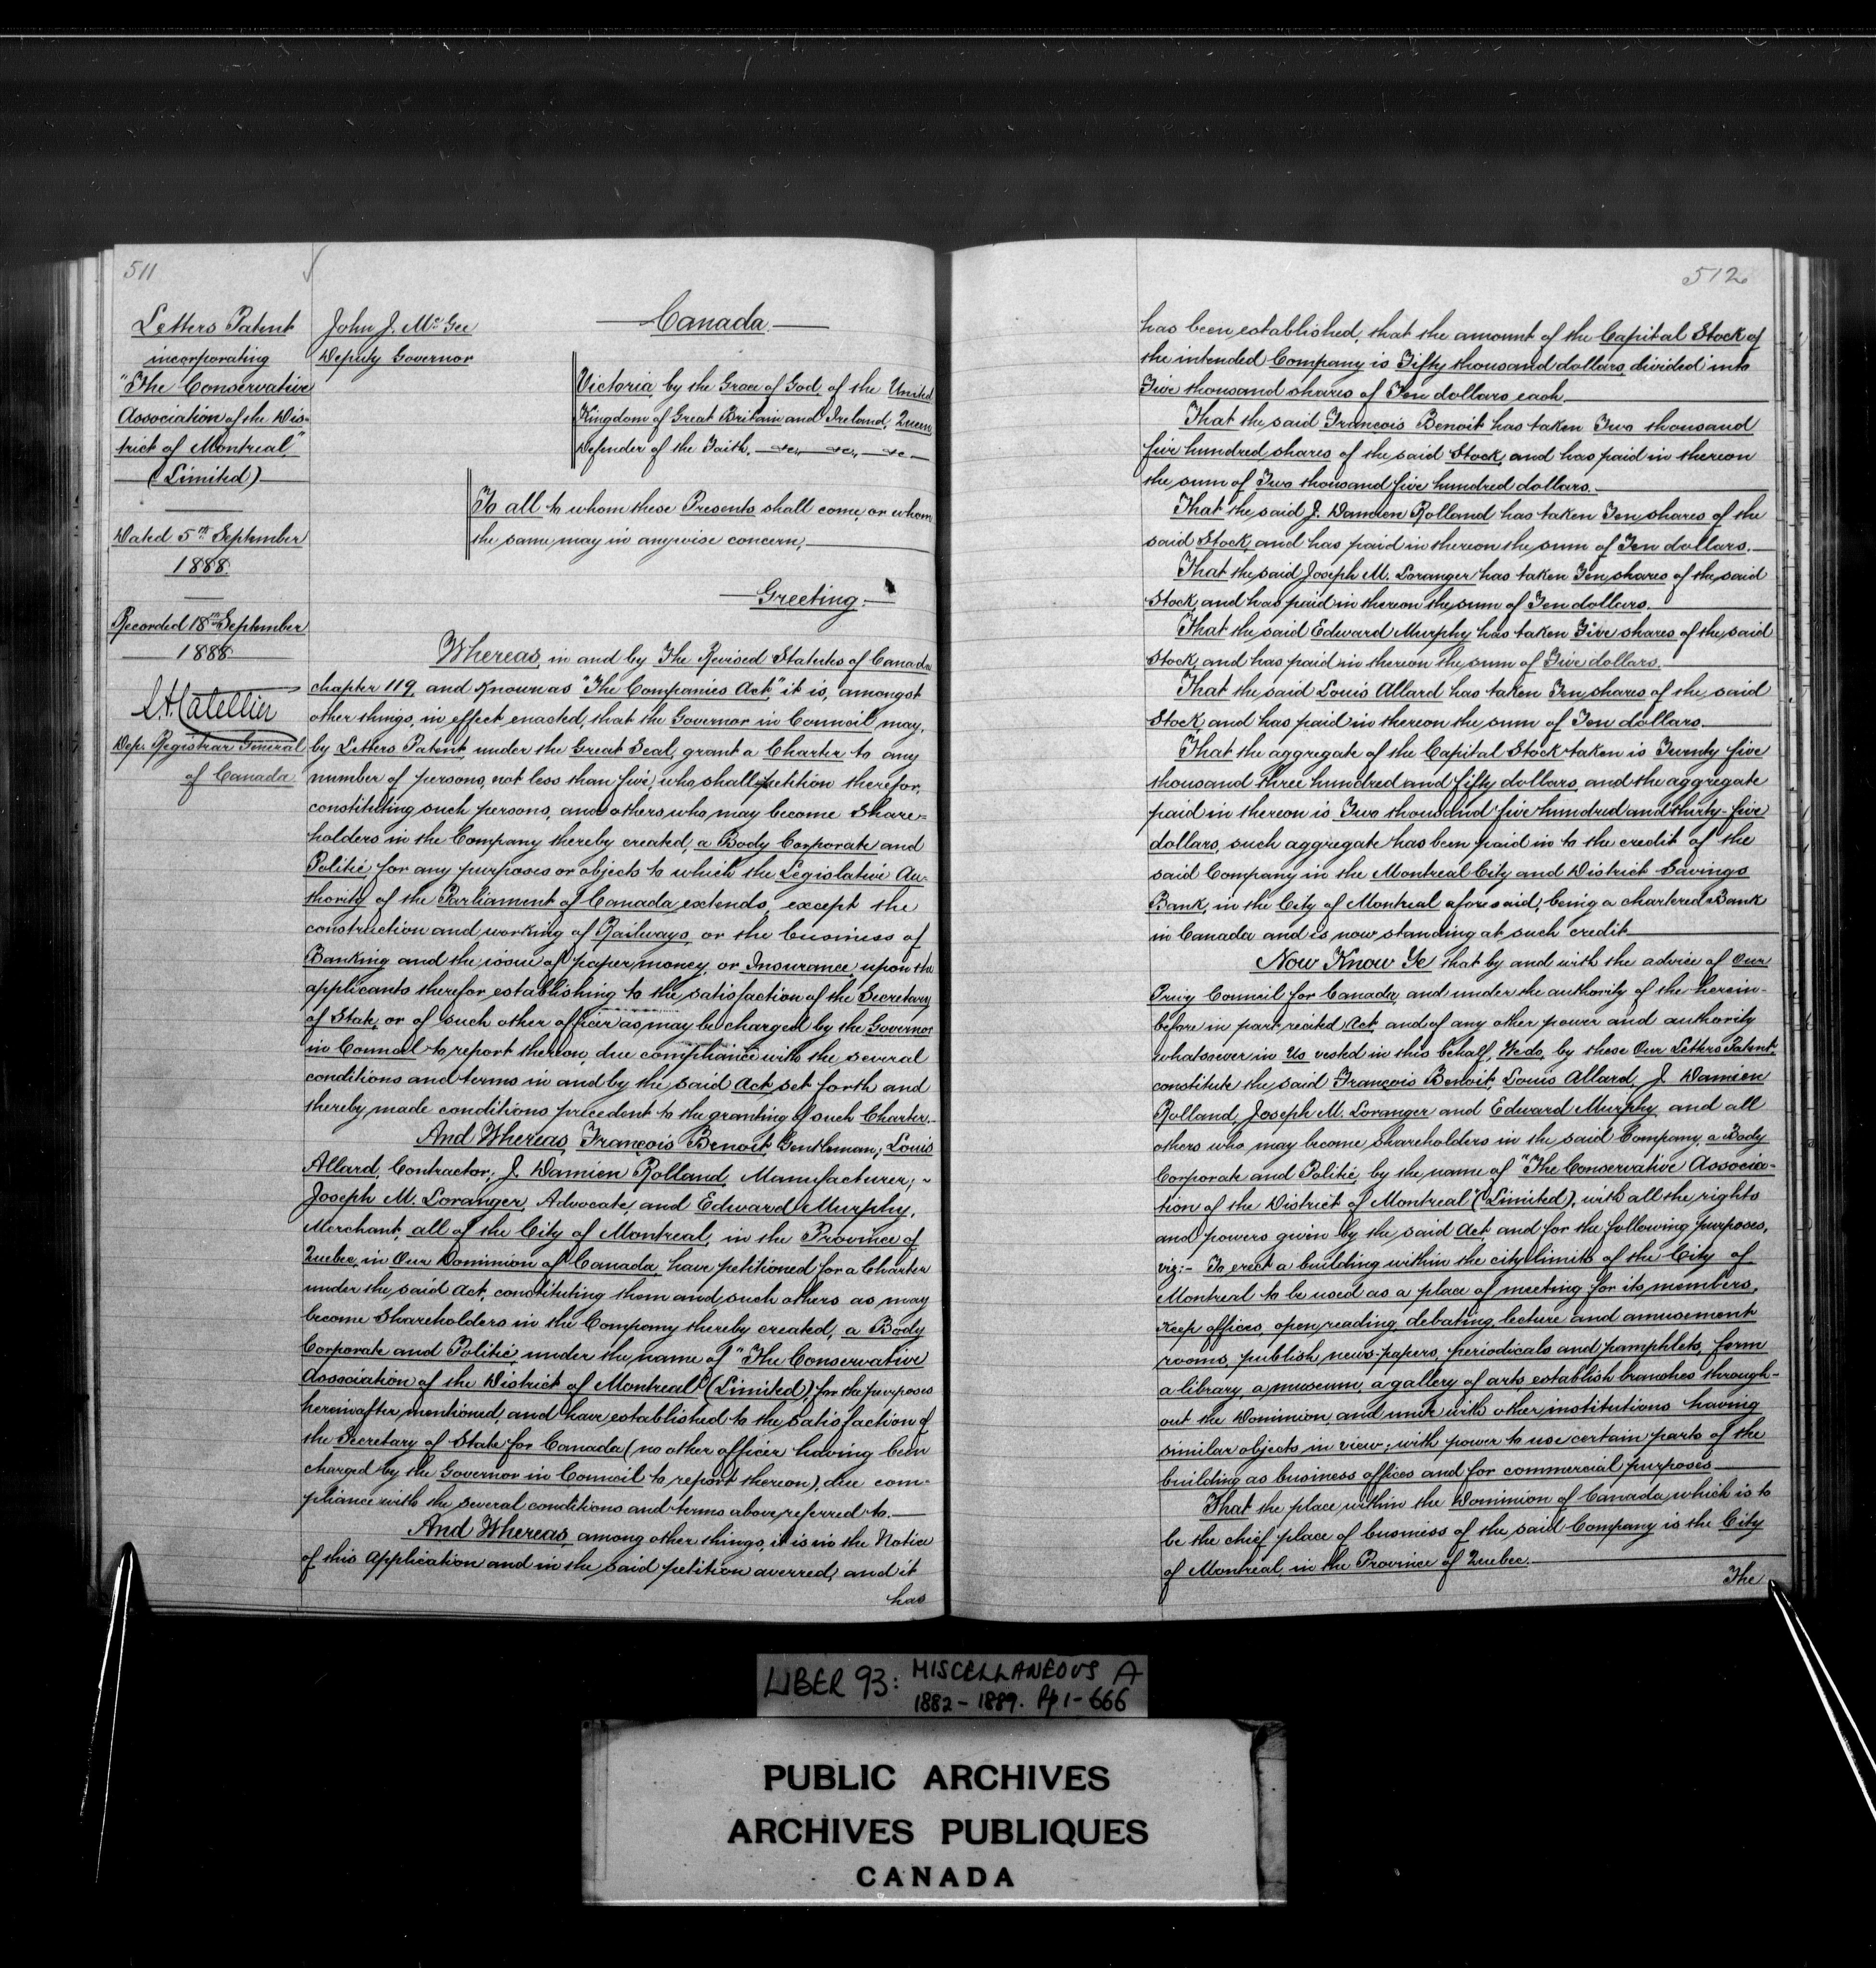 511
Letters Patent
incorporating
"The Conservative
Association of the Dis-
trict of Montreal"
(Limited)
Dated 5th September
1888.
Recorded 18th September
1888
L. A. Catellier
Dep. Registrar General
of Canada.
John J. McGee
Deputy Governor
Canada.
Victoria, by the Grace of God, of the United
Kingdom of Great Britain and Ireland, Queen
Defender of the Faith, &c., &c., &c.
To all to whom these Presents shall come, or whom
the same may in anywise concern,
Greeting:
Whereas, in and by The Revised Statutes of Canada
chapter 119, and known as "The Companies Act," it is, amongst
other things, in effect, enacted, that the Governor in Council may,
by Letters Patent, under the Great Seal, grant a Charter to any
number of persons, not less than five, who shall petition therefor,
constituting such persons, and others who may become Share-
holders in the Company thereby created, a Body Corporate and
Politic for any purposes or objects to which the Legislative Au-
thority of the Parliament of Canada extends, except the
construction and working of Railways, or the business of
Banking and the issue of paper money, or Insurance, upon the
applicants therefor, establishing to the satisfaction of the Secretary
of State, or of such other officer as may be charged by the Governor
in Council to report thereon, due compliance with the several
conditions and terms in and by the said Act set forth and
thereby made conditions precedent to the granting of such Charter.
And Whereas, François Benoit, Gentleman; Louis
Allard, Contractor; J. Damien Rolland, Manufacturer;
Joseph M. Loranger, Advocate, and Edward Murphy,
Merchant, all of the City of Montreal, in the Province of
Quebec, in Our Dominion of Canada, have petitioned for a Charter
under the said Act, constituting them and such others as may
become Shareholders in the Company thereby created, a Body
Corporate and Politic, under the name of "The Conservative
Association of the District of Montreal" (Limited), for the purposes
hereinafter mentioned, and have established to the satisfaction of
the Secretary of State for Canada (no other officer having been
charged by the Governor in Council to report thereon), due com-
pliance with the several conditions and terms above referred to.
And Whereas, among other things, it is in the Notice
of this Application and in the said petition averred, and it
has
512
has been established, that the amount of the Capital Stock of
the intended Company is Fifty thousand dollars, divided into
Five thousand shares of Ten dollars each.
That the said François Benoit has taken Two thousand
five hundred shares of the said Stock, and has paid in thereon
the sum of Two thousand five hundred dollars.
That the said J. Damien Rolland has taken Ten shares of the
said Stock, and has paid in thereon the sum of Ten dollars.
That the said Joseph M. Loranger has taken Ten shares of the said
Stock, and has paid in thereon the sum of Ten dollars.
That the said Edward Murphy has taken Five shares of the said
Stock, and has paid in thereon the sum of Five dollars.
That the said Louis Allard has taken Ten shares of the said
Stock, and has paid in thereon the sum of Ten dollars.
That the aggregate of the Capital Stock taken is Twenty five
thousand three hundred and fifty dollars, and the aggregate
paid in thereon is Two thousand five hundred and thirty-five
dollars, such aggregate has been paid in to the credit of the
said Company in the Montreal City and District Savings
Bank, in the City of Montreal aforesaid, being a chartered Bank
in Canada and is now standing at such credit
Now Know Ye that by and with the advice of Our
Privy Council for Canada, and under the authority of the herein-
before in part recited Act, and of any other power and authority
whatsoever in Us vested in this behalf, We do, by these Our Letters Patent,
constitute the said François Benoit, Louis Allard, J. Damien
Rolland, Joseph M. Loranger and Edward Murphy, and all
others who may become shareholders in the said Company, a Body
Corporate and Politic, by the name of "The Conservative Associa-
tion of the District of Montreal" (Limited), with all the rights
and powers given by the said Act, and for the following purposes,
viz:- To erect a building within the city limits of the City of
Montreal to be used as a place of meeting for its members,
keep offices, open reading, debating, lecture and amusement
rooms, publish news-papers, periodicals and pamphlets, form
a library, a museum, a gallery of arts, establish branches through-
out the Dominion and unite with other institutions having
similar objects in view; with power to use certain parts of the
building as business offices and for commercial purposes
That the place within the Dominion of Canada, which is to
be the chief place of business of the said Company is the City
of Montreal, in the Province of Quebec.
The
LIBER 93: MISCELLANEOUS A
1882-1889. Pp 1-666
PUBLIC ARCHIVES
ARCHIVES PUBLIQUES
CANADA